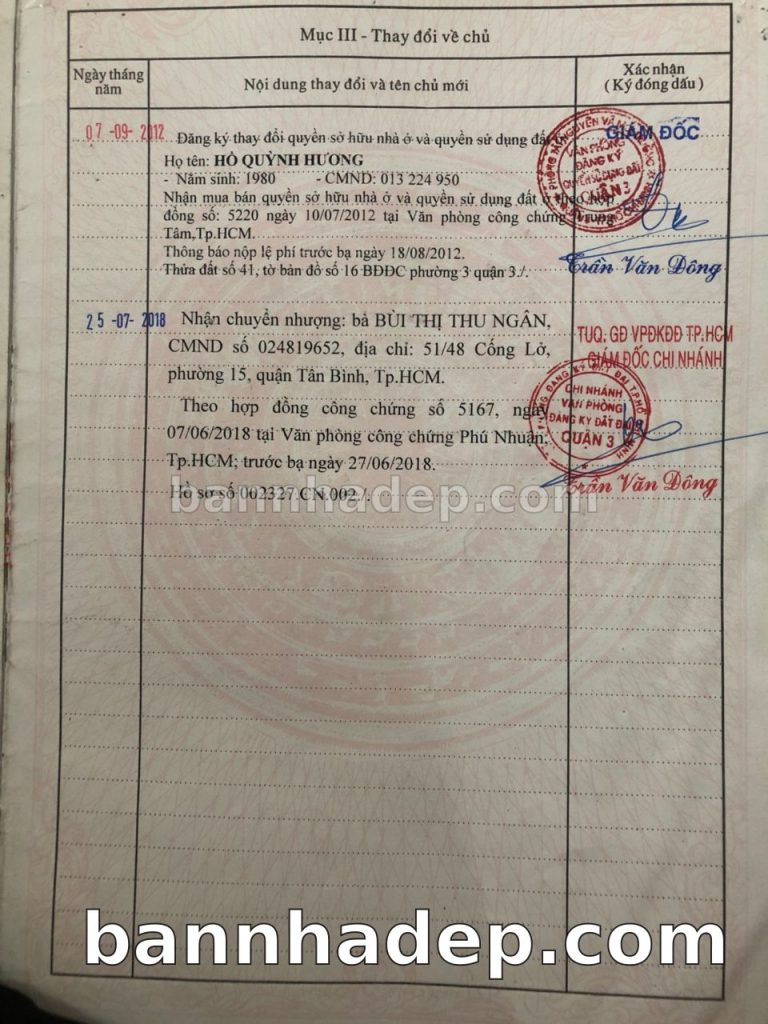 Mục III - Thay đổi về chủ
Ngày tháng năm
Nội dung thay đổi và tên chủ mới
Xác nhận
( Ký đóng dấu )
07 -09- 2012
Đăng ký thay đổi quyền sở hữu nhà ở và quyền sử dụng đất
Họ tên: HỒ QUỲNH HƯƠNG
- Năm sinh: 1980 - CMND: 013 224 950
Nhận mua bán quyền sở hữu nhà ở và quyền sử dụng đất ở theo hợp
đồng số: 5220 ngày 10/07/2012 tại Văn phòng công chứng Trung
Tâm,Tp.HCM.
Thông báo nộp lệ phí trước bạ ngày 18/08/2012.
Thửa đất số 41, tờ bản đồ số 16 BĐĐC phường 3 quận 3./.
GIÁM ĐỐC
VĂN PHÒNG
ĐĂNG KÝ
QUYỀN SỬ DỤNG ĐẤT
QUẬN 3
Trần Văn Đông
25 -07- 2018
Nhận chuyển nhượng: bà BÙI THỊ THU NGÂN,
CMND số 024819652, địa chỉ: 51/48 Cống Lở,
phường 15, quận Tân Bình, Tp.HCM.
Theo hợp đồng công chứng số 5167, ngày
07/06/2018 tại Văn phòng công chứng Phú Nhuận,
Tp.HCM; trước bạ ngày 27/06/2018.
Hồ sơ số 002327.CN.002./.
TUQ. GĐ VPĐKĐĐ TP.HCM
GIÁM ĐỐC CHI NHÁNH
CHI NHÁNH
VĂN PHÒNG
ĐĂNG KÝ ĐẤT ĐAI
QUẬN 3
Trần Văn Đông
bannhadep.com
bannhadep.com